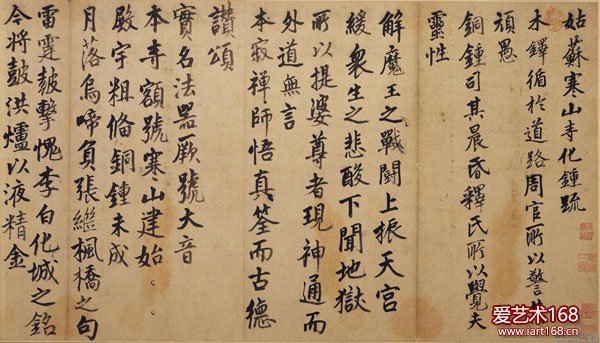 姑蘇寒山寺化鍾疏
木鐸循於道路周官所以警其
頑愚
銅鍾司其晨昏釋氏所以覺夫
靈性
解魔王之戰鬪上振天宮
緩衆生之悲酸下聞地獄
所以提婆尊者現神通而
外道無言
本寂禪師悟真筌而古德
讚頌
實名法噐厥號大音
本寺額號寒山建始
殿宇粗脩銅鍾未成
月落烏啼負張繼楓橋之句
雷霆鼓擊愧李白化城之銘
今將鼓洪爐以液精金
爱艺术168
www.iart168.com